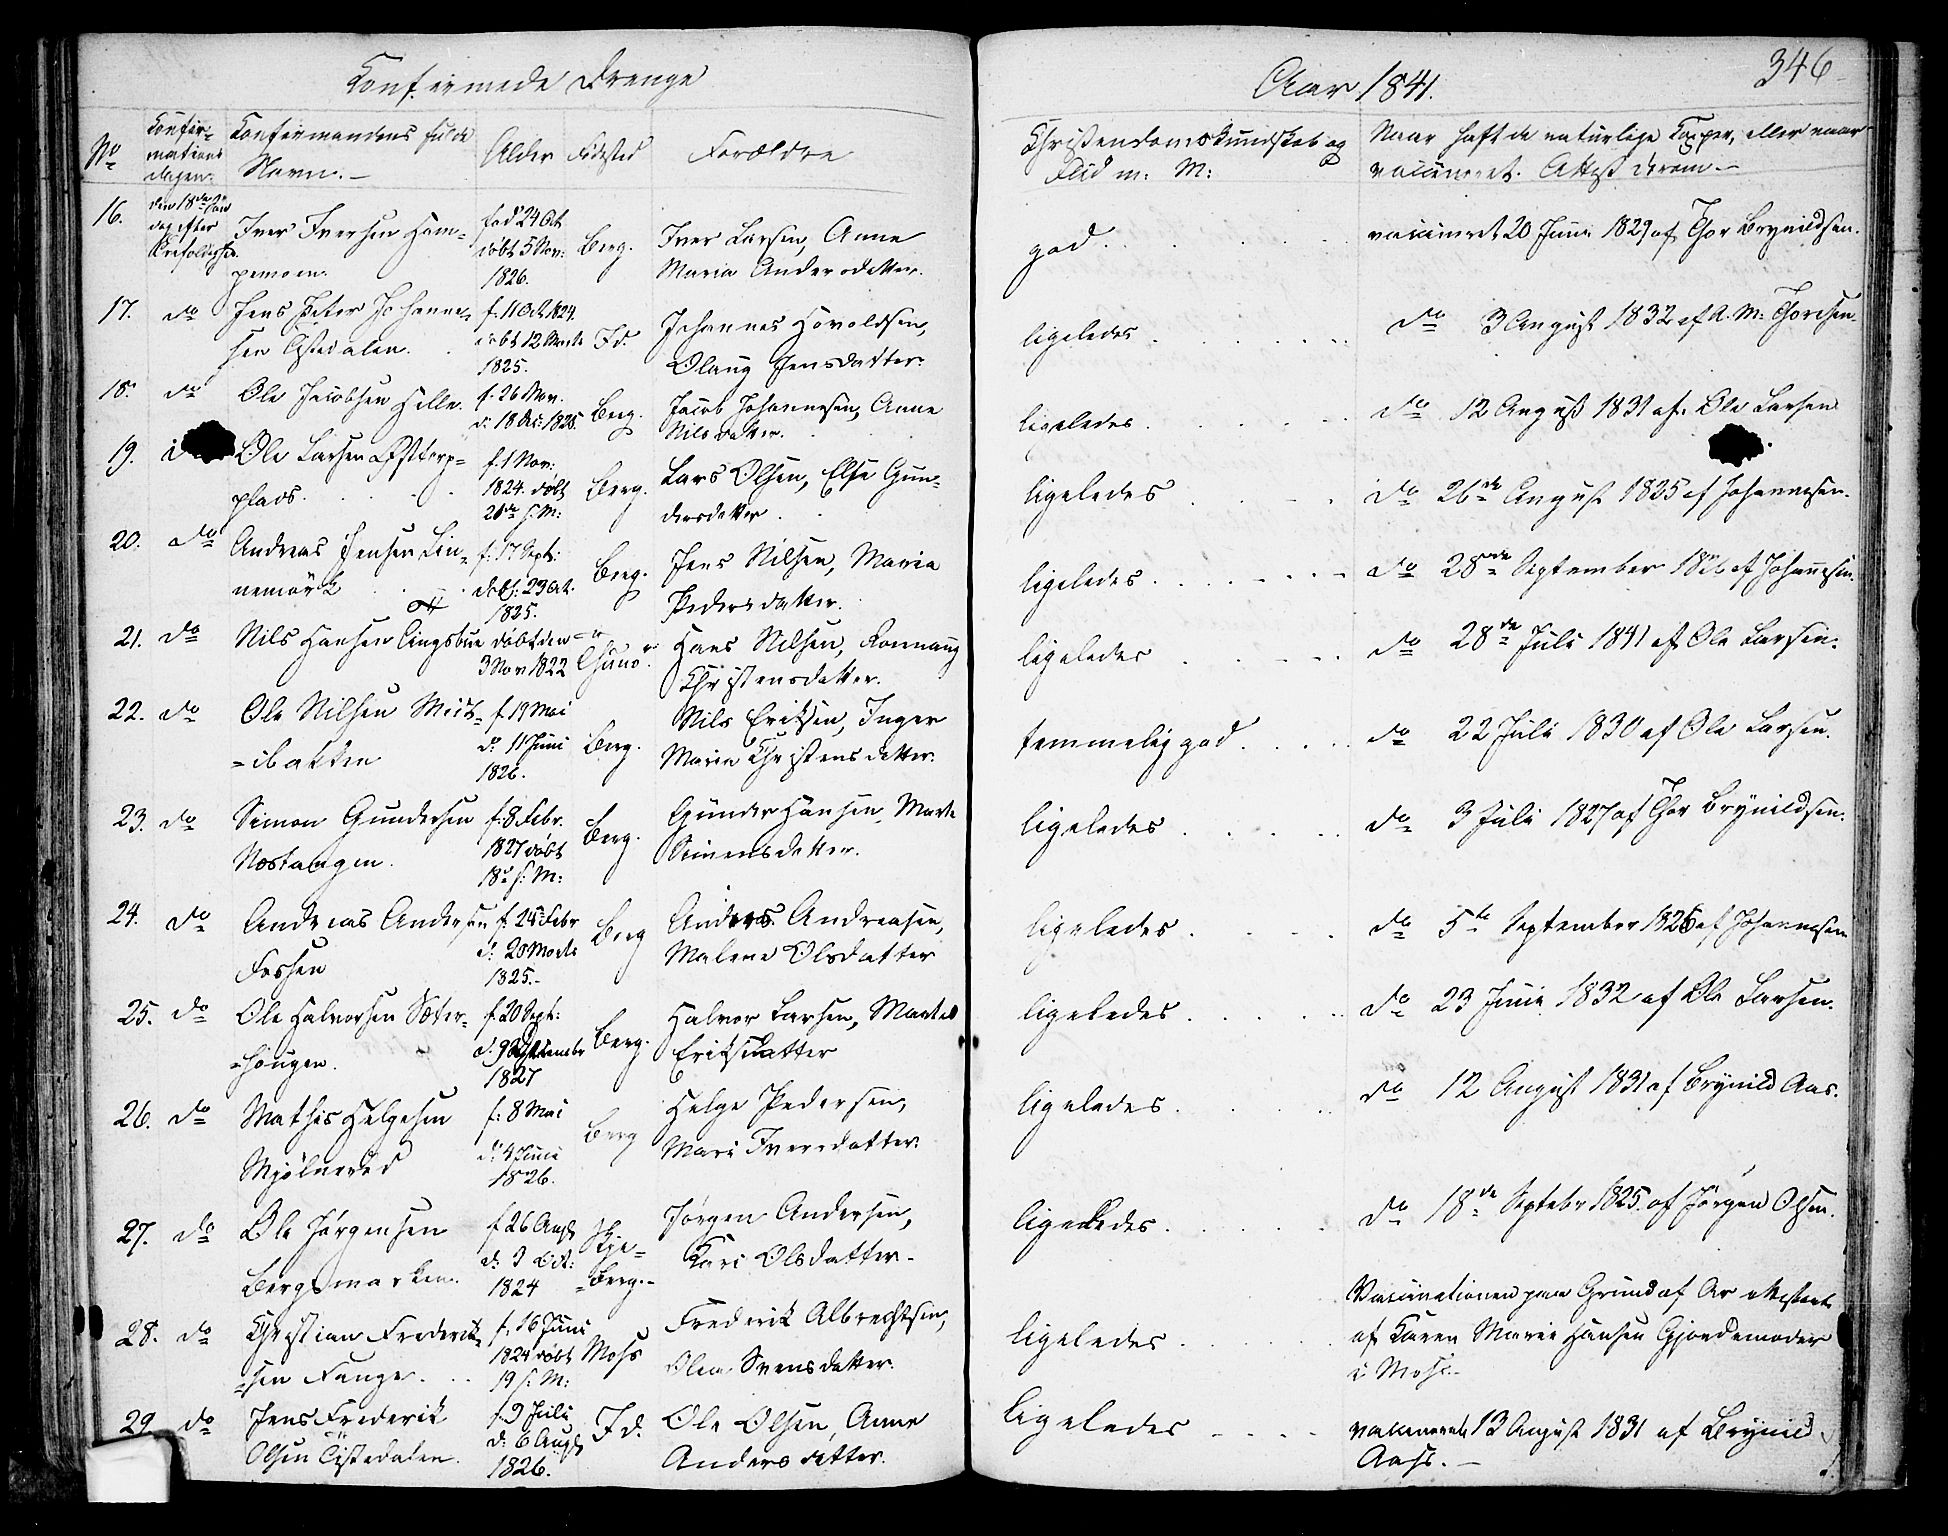 Confirmede Drenge
Aar 1841.
346
No
Confir-
mations
dagen.
Confirmandens fulde
Navn.
Alder
Fødested
Forældre
Christendomskundskab og
Flid m: M:
Naar haft de naturlige Kopper, eller naar
vaccineret. Attest derom.
16.
den 18de
dag efter
Trefoldighed.
Iver Iversen Hom-
pemoen.
fød 24 Oct
døbt 5 Nov:
1826.
Berg.
Iver Larsen, Anne
Maria Andersdatter.
god.
vaccineret 20 Juni 1829 af Thor Brynildsen.
17.
do
Jens Peter Johanne-
sen Tistedalen.
f. 11 Oct. 1824.
døbt 12 Marts
1825.
Id.
Johannes Havoldsen,
Olaug Jensdatter.
ligeledes
do 3 August 1832 af A. M. Thoresen.
18.
do
Ole Jacobsen Helle.
f. 26 Nov.
d: 18 Dec: 1825.
Berg.
Jacob Johannesen, Anne
Nilsdatter.
ligeledes.
do 12 August 1831 af Ole Larsen
19.
Ole Larsen Østtorp-
plads.
f. 1 Nov:
1824. døbt
21de s: M:
Berg.
Lars Olsen, Else Gun-
dersdatter.
ligeledes
do 26de August 1825 af Johannesen.
20.
do
Andreas Jensen Lin-
nemörk
f. 17 Sept:
døbt: 23 Oct.
1825.
Berg.
Jens Nilsen, Maria
Pedersdatter.
ligeledes
do 28de September af Johannesen.
21.
do
Nils Hansen Lingsbue
døbt den
3 Nov 1822
Hans Nilsen, Ronnaug
Christensdatter.
ligeledes
do 28de Juli 1841 af Ole Larsen.
22.
do
Ole Nilsen
=ibakken
f. 19 Mai
d: 11 Juni
1826.
Berg.
Nils Eriksen, Inger
Maria Christensdatter.
temmelig god.
do 22 Juli 1830 af Ole Larsen.
23.
do
Simon Gundersen
Næstangen.
f: 8 Febr.
1827 døbt
18de s: M:
Berg.
Gunder Hansen, Marte
Simensdatter.
ligeledes
do 3 Juli 1827 af Thor Brynildsen.
24.
do
Andreas Andersen
Fossen
f. 25 Febr
d: 20 Marts
1825.
Berg
Anders Andreasen,
Malene Olsdatter
ligeledes.
do 5te September 1826 af Johannesen
25.
do
Ole Halvorsen Sæter-
=hougen.
f. 20 Sept:
1827
Berg.
Halvor Larsen, Marte
Eriksdatter
ligeledes.
do 23 Juni 1832 af Ole Larsen.
26.
do
Mathis Helgesen
Mjølnerød
f: 8 Mai
d: 4 Juni
1826.
Berg
Helge Pedersen,
Mari Iversdatter.
ligeledes.
do 12 August 1831 af Brynild Aas.
27.
do
Ole Jørgensen
Bergsmarken.
f 26 Aug
d: 3 Oct:
1824
Skje-
=berg.
Jørgen Andersen,
Kari Olsdatter.
ligeledes.
do 18de Septebr 1825. af Jørgen Olsen.
28.
do
Christian Frederik-
=sen Fange.
f. 16 Juni
1824 døbt
19 s: M:
Moss
Frederik Albrechtsen,
Olea Svensdatter.
ligeledes.
Vaccinationen paa Grund af Ar attesteret
af Karen Marie Hansen Gjordemoder
i Moss.
29.
do
Jens Frederik
Olsen Tistedalen.
f. 9 Juli
d: 6 Aug
1826.
Id.
Ole Olsen, Anne
Andersdatter.
ligeledes
vaccineret 13 August 1831 af Brynild
Aass.